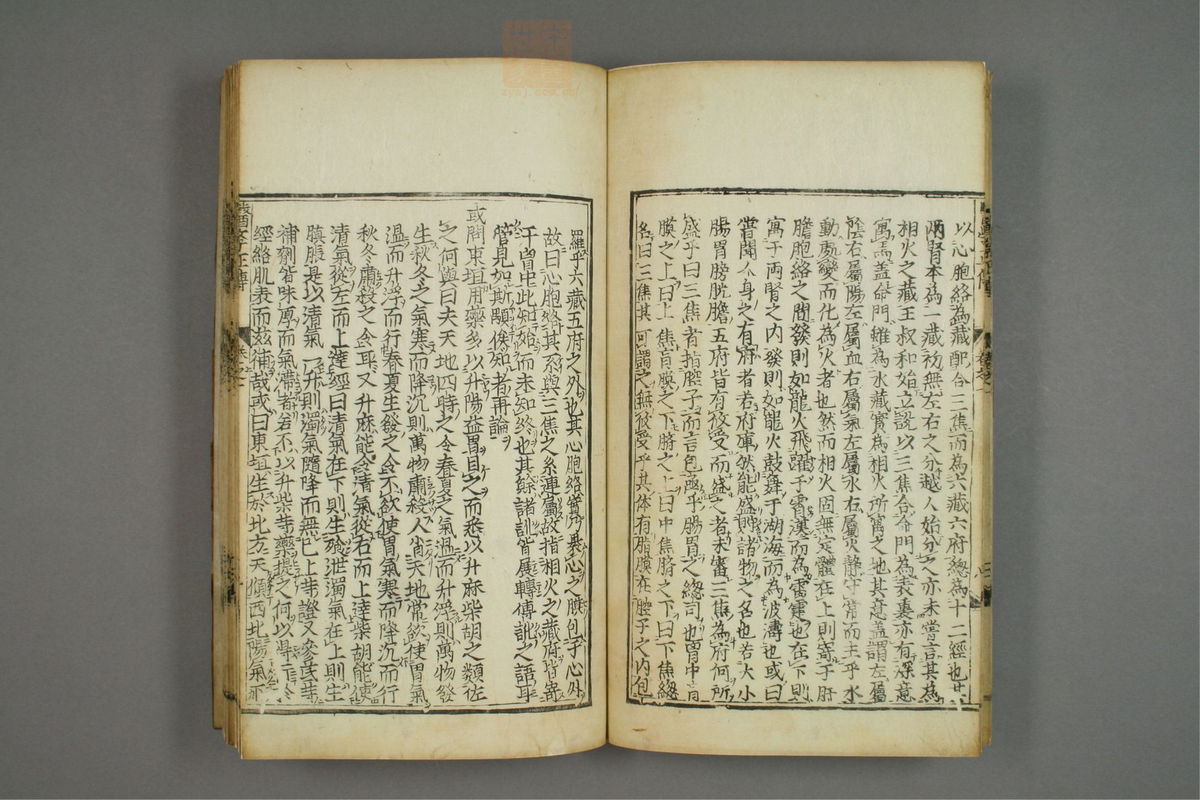 以心胞絡為藏配合三焦而為六藏六府總為十二經也其
兩腎本為一藏初無左右之分越人始分之亦未嘗言其為
相火之藏王叔和始立說以三焦合命門為表裏亦有深意
寓焉蓋命門雖為水藏實為相火所寓之地其意蓋謂左屬
陰右屬陽左屬血右屬氣左屬水右屬火靜守常而主乎水
動處變而化為火者也然而相火固無定體在上則寄于肝
膽胞絡之間發則如龍火飛躍于霄漢而為雷霆也在下則
寓于兩腎之內發則如龍火鼓舞于湖海而為波濤也或曰
嘗聞人身之有府者若府庫然能盛貯諸物之名也若大小
腸胃膀胱膽五府皆有攸受而盛之者未審三焦為府何所
盛乎曰三焦者指腔子而言包涵乎腸胃之總司也胃中肓
膜之上曰上焦肓膜之下臍之上曰中焦臍之下曰下焦總
名曰三焦其可謂之無攸受乎其体有脂膜在腔子之內包
羅乎六藏五府之外也其心胞絡實乃裹心之膜包于心外
故曰心胞絡其系與三焦之系連屬故指相火之藏府皆寄
于胃是知始而未知終也其餘諸訓皆展轉傳訛之語耳
管見如斯願俟知者再論
或問東垣用藥多以升陽益胃目之而悉以升麻柴胡之類佐
之何與曰夫天地四時之令春夏之氣溫而升浮則萬物發
生秋冬之氣寒而降沉則萬物肅殺人肖天地常欲使胃氣
溫而升浮而行春夏生發之令不欲使胃氣寒而降沉而行
秋冬肅殺之令耳又升麻能令清氣從右而上達柴胡能使
清氣從左而上達經曰清氣在下則生飱泄濁氣在上則生
䐜脹是以清氣一升則濁氣隨降而無已上等證又參芪等
補劑皆味厚而氣滯者若不以升柴等藥提之何以得行於
經絡肌表而滋補哉或曰東垣生於北方天傾西北陽氣下